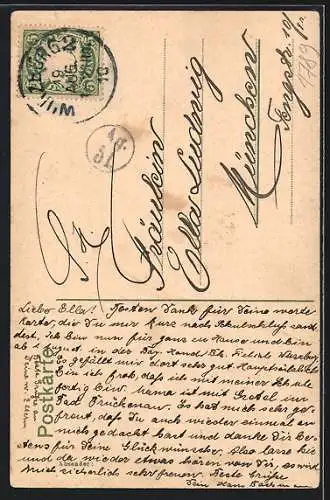 WÜRZBURG 2
19 AUG.
10
BAYERN
S. H.
Fräulein
Ella Ludwig
München
Tengstr. 10/
Postkarte
Absender:
Liebe Ella! Besten Dank für Deine werte
Karte, die Du mir kurz nach Schulschluß sand-
dest. Ich bin nun für ganz zu Hause und bin
ab 1. August in der Bay. Filiale Würzburg.
Es gefällt mir dort sehr gut. Hauptsächlich
bin ich froh, daß ich mit meiner Schule
fertig bin. Mama ist mit in
Bad Brückenau. Es hat mich sehr ge-
freut, daß Du auch wieder einmal an
mich gedacht hast und danke Dir be-
stens für Deine Glückwünsche. Also lasse hie
und da wieder etwas hören von Dir, es wird
mich sicherlich sehr freuen. Beste Grüße
Dein